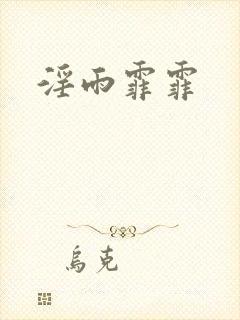 淫雨霏霏
烏克